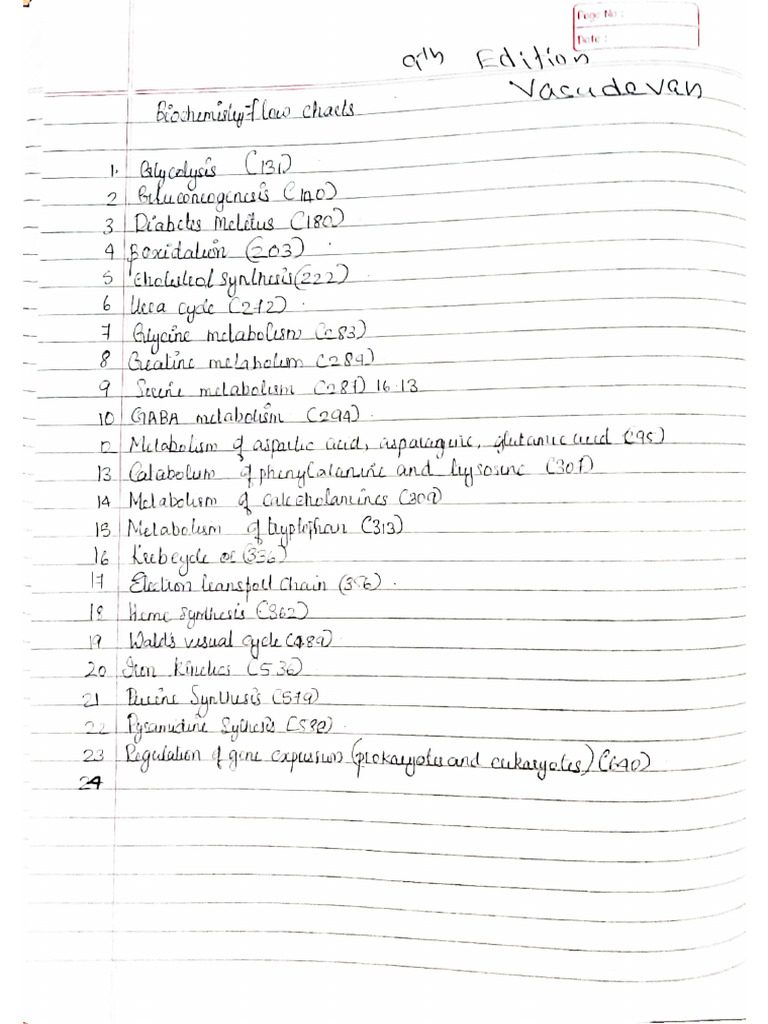 Page No :
Date :
9th Edition
Vasudevan
Biochemistry-flow charts
1. Glycolysis (131)
2 Gluconeogenesis (140)
3 Diabetes Melitus (180)
4 β oxidation (203)
5 Cholesterol synthesis (222)
6 Urea cycle (272)
7 Glycine metabolism (283)
8 Creatine metabolism (284)
9 Serine metabolism (287) 16.13
10 GABA metabolism (294)
12 Metabolism of aspartic acid, asparagine, glutamic acid (95)
13 Catabolism of phenylalanine and (307)
14 Metabolism of (309)
15 Metabolism of tryptophan (313)
16 Kreb cycle (336)
17 Electron transport chain
18 Heme synthesis (362)
19 Wald's visual cycle (489)
20 Iron Kinetics (536)
21 Purine Synthesis (579)
22
23 Regulation of gene expression (prokaryotes and eukaryotes) (640)
24